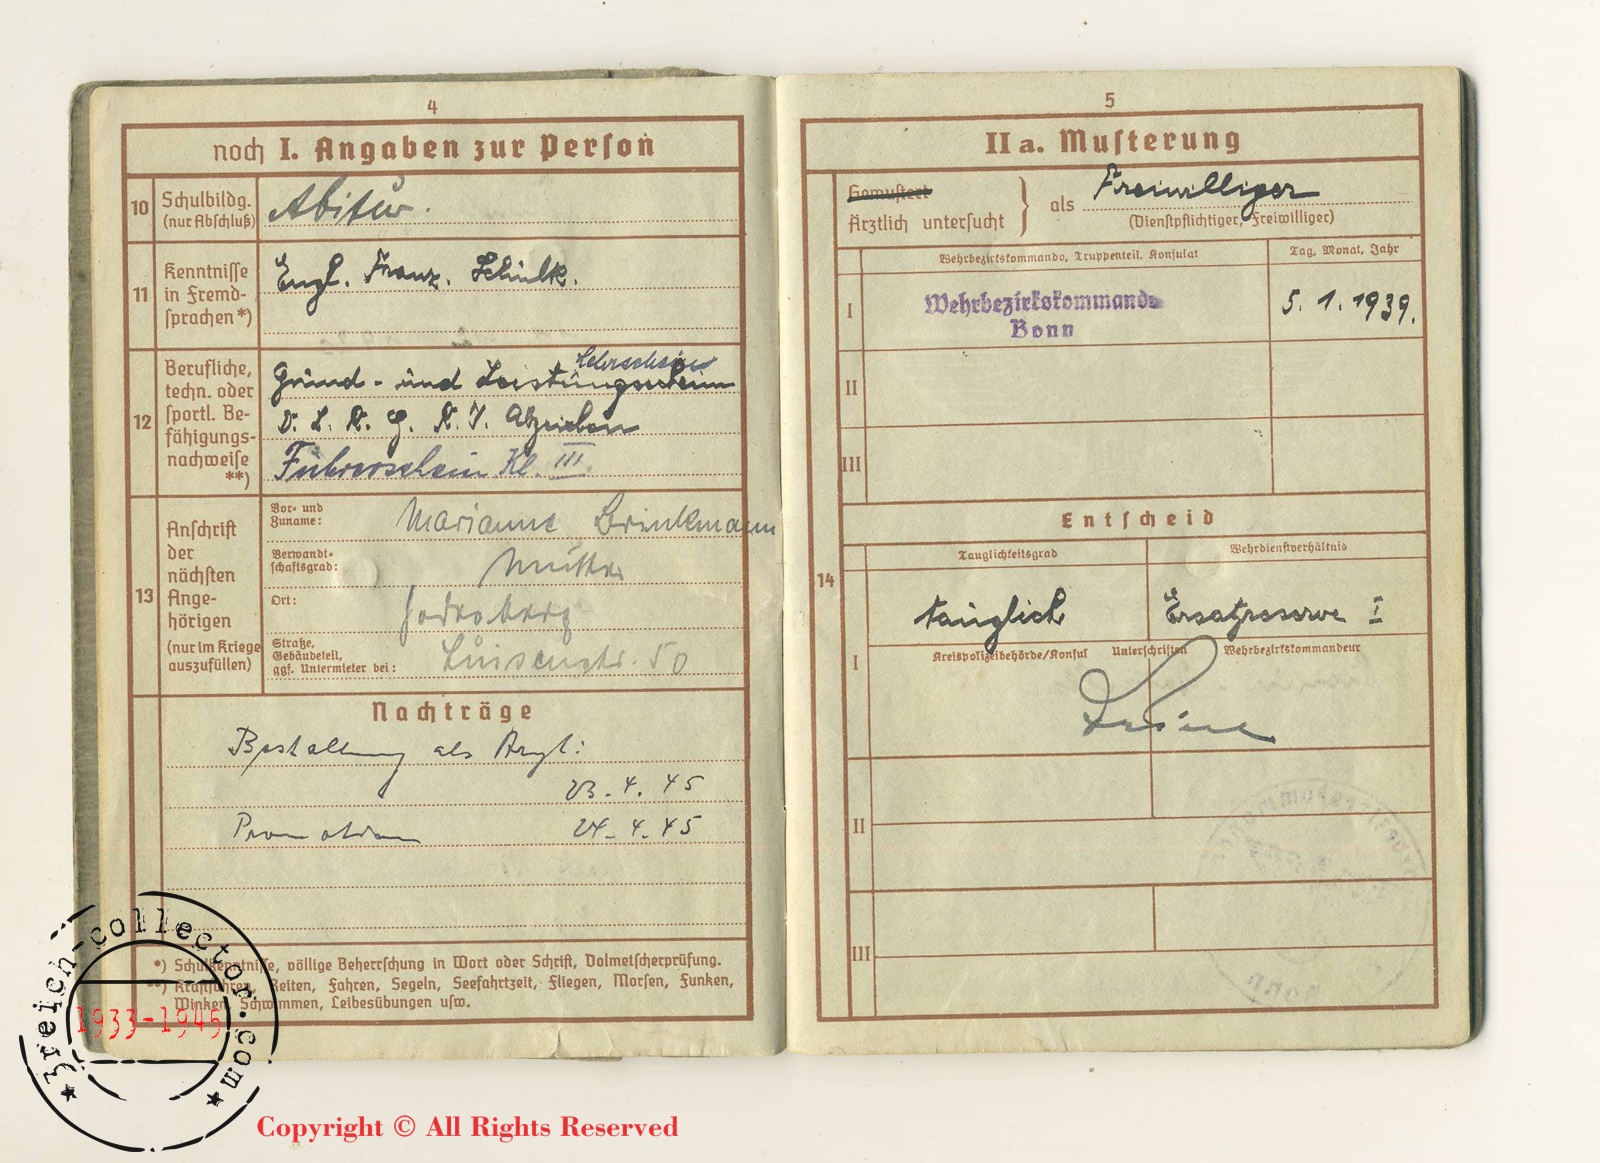 4
noch I. Angaben zur Person
10
Schulbildg.
(nur Abschluß)
Abitur.
11
Kenntnisse
in Fremd-
sprachen*)
Engl. Franz. Schulk.
12
Berufliche,
techn. oder
sportl. Be-
fähigungs-
nachweise
**)
Lehrschein
Grund- und Leistungsschein
D. L. R. G. R. J. Abzeichen
Führerschein Kl. III
13
Anschrift
der
nächsten
Ange-
hörigen
(nur im Kriege
auszufüllen)
Vor- und
Zuname:
Marianne Brinkmann
Verwandt-
schaftsgrad:
Mutter
Ort:
Godesberg
Straße,
Gebäudeteil,
ggf. Untermieter bei:
Luisenstr. 50
Nachträge
Bestallung als Arzt:
23. 4. 45
Promotion
24. 4. 45
*) Schulkenntnisse, völlige Beherrschung in Wort oder Schrift, Dolmetscherprüfung.
**) Kraftfahren, Reiten, Fahren, Segeln, Seefahrtzeit, Fliegen, Morsen, Funken,
Winken, Schwimmen, Leibesübungen usw.
5
II a. Musterung
Gemustert
Ärztlich untersucht
als
Freiwilliger
(Dienstpflichtiger, Freiwilliger)
Wehrbezirkskommando, Truppenteil, Konsulat
Tag, Monat, Jahr
I
Wehrbezirkskommando
Bonn
5. 1. 1939.
II
III
Entscheid
14
Tauglichkeitsgrad
Wehrdienstverhältnis
I
tauglich
Ersatzreserve I
Kreispolizeibehörde/Konsul Unterschriften Wehrbezirkskommandeur
II
III
3reich-collector.com
1933-1945
Copyright © All Rights Reserved